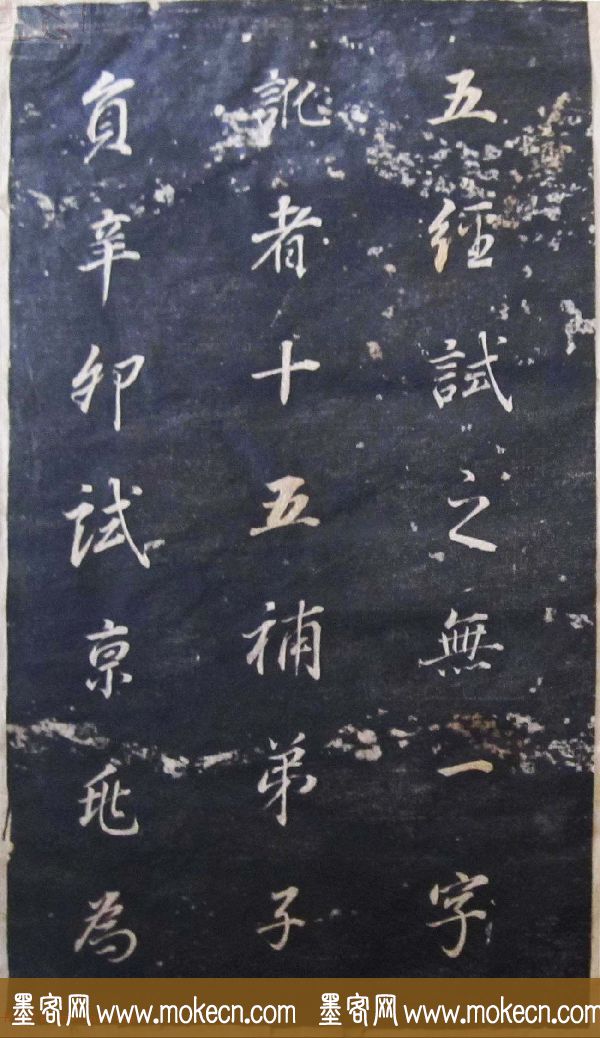 五經試之無一字
訛者十五補弟子
員辛卯試京兆為
墨客网 www.mokecn.com 墨客网 www.mokecn.com